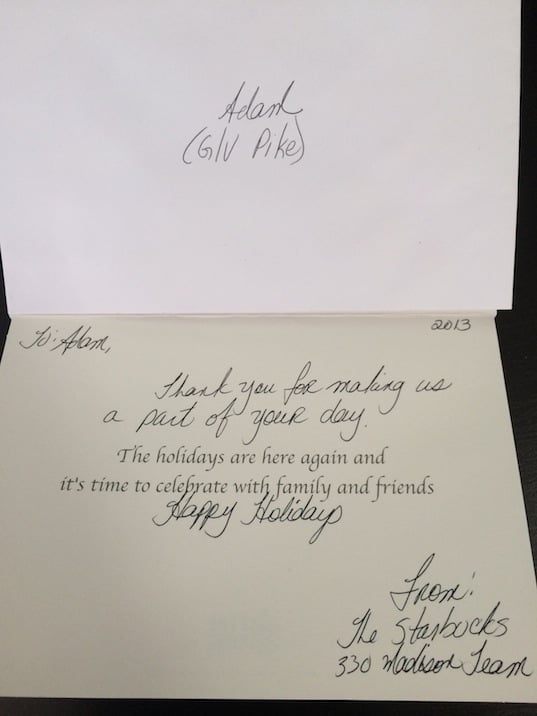 Adam
(G/V Pike)
2013
To: Adam,
Thank you for making us
a part of your day.
The holidays are here again and
it's time to celebrate with family and friends
Happy Holidays
From:
The Starbucks
330 Madison Team